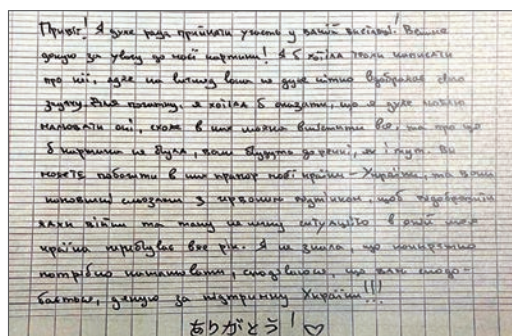 Привіт! Я дуже рада прийняти участь у вашій виставці! Велике
дякую за увагу до моєї картини! Я б хотіла трохи написати
про неї, адже на вигляд вона не дуже чітко відображає свою
задумку. Для початку, я хотіла б сказати, що я дуже люблю
малювати очі, схоже в них можна вмістити все, та про що
б картина не була, вони будуть доречні, як і тут. Ви
можете побачити в них прапор моєї країни - України, та вони
наповнені сльозами з червоним підтінком, щоб відобразити
жахи війни та таку не ситуацію в якій моя
країна перебуває вже рік. Я не знала, що конкретно
потрібно написати, сподіваюся, що вам сподо-
бається, дякую за підтримку України!!!